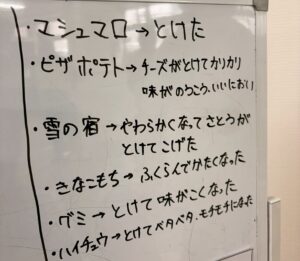 ・マシュマロ→とけた
・ピザポテト→チーズがとけてカリカリ
味がのうこう、いいにおい
・雪の宿→やわらかくなってさとうが
とけてこげた
・きなこもち→ふくらんでかたくなった
・グミ→とけて味がこくなった
・ハイチュウ→とけてベタベタ、モチモチになった